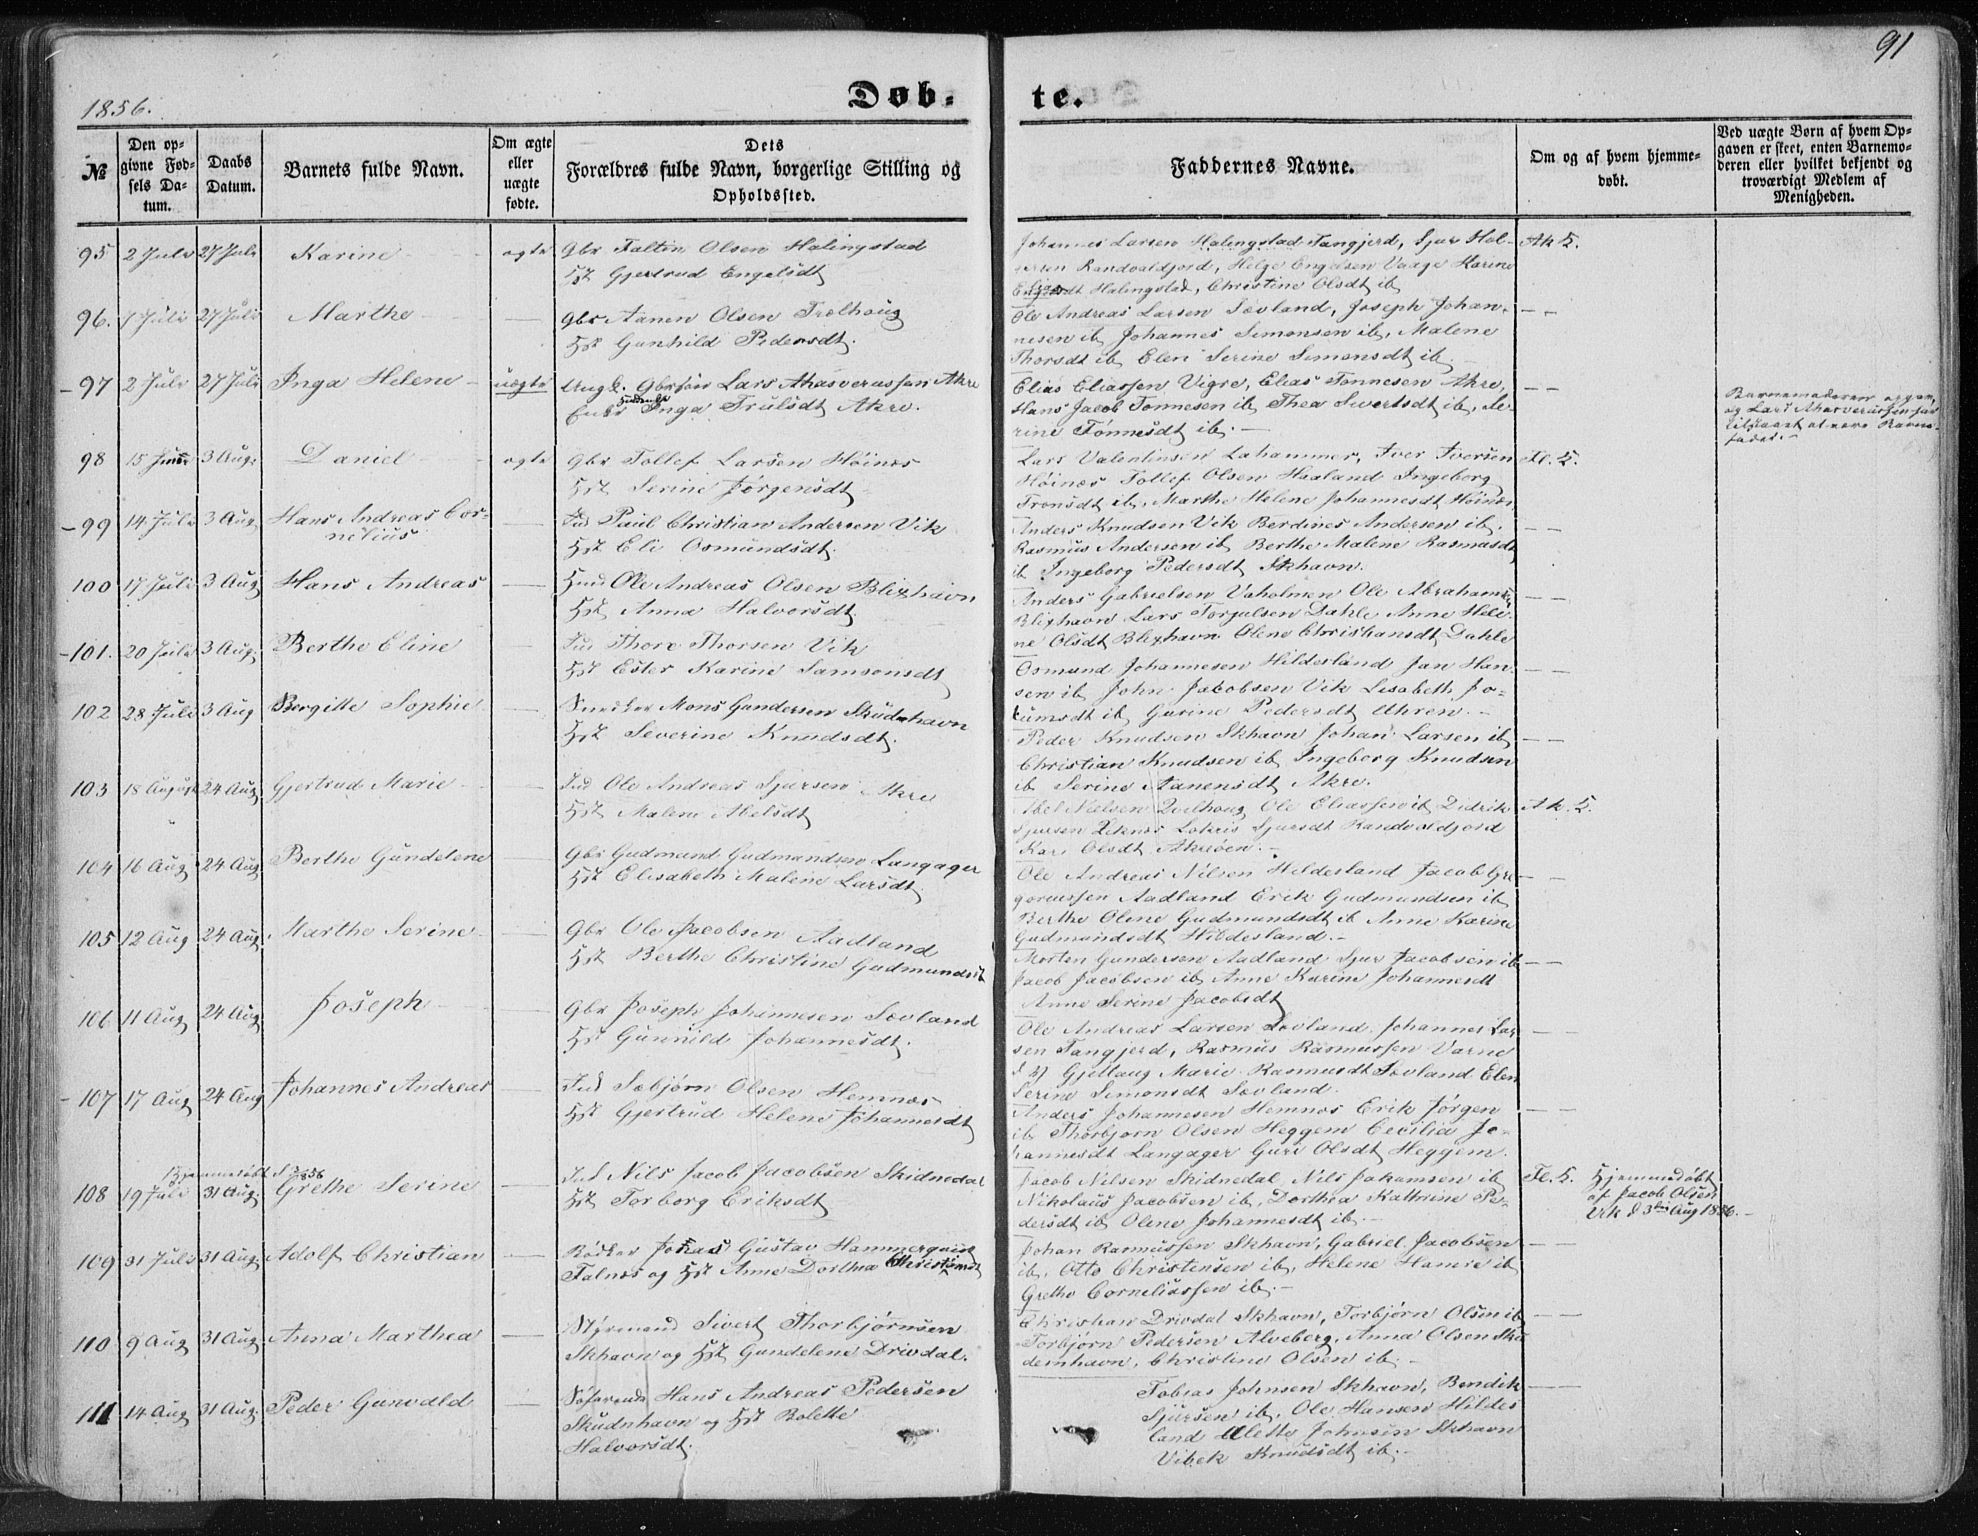 91
1856.
Døb-
te.
№
Den op-
givne Fød-
sels Da-
tum.
Daabs
Datum.
Barnets fulde Navn.
Om ægte
eller
uægte
fødte.
Dets
Forældres fulde Navn, borgerlige Stilling og
Opholdssted.
Faddernes Navne.
Om og af hvem hjemme-
døbt.
Ved uægte Børn af hvem Op-
gaven er skeet, enten Barnemo-
deren eller hvilket bekjendt og
troværdigt Medlem af
Menigheden.
95 2 Juli 27 Juli Karine ægte Gbr Faltin Olsen Halingstad
Hst Gjertrud Engelsdt
Johannes Larsen Halingstad Tangjerd, Sjur Hol-
gersen Randvaldjord, Helge Engelsen Vaage Karine
Halingstad, Christine Olsdt ib
Ak K.
96. 7 Juli 27 Juli Marthe — Gbr Aanen Olsen Trælhoug
Hst Gunhild Pedersdt.
Ole Andreas Larsen Sævland, Joseph Johan-
nesen ib Johannes Simonsen ib, Malene
Thorsdt ib Elen Serine Simonsdt ib.
— —
- 97 2 Juli 27 Juli Inga Helene uægte Ungk. Gbrsøn Lars Ahasverussen Akre
Inga Trulsdt Akre.
Elias Eliassen Vigre, Elias Tønnesen Akre,
Hans Jacob Tønnesen ib, Thea Sivertsdt ib, Se-
rine Tønnesdt ib. —
— —
Barnemoderen
og Lars Ahasverussen har
tilstaaet at være Barne-
fader. —
98 15 3 Aug. Daniel ægte Gbr Tollef Larsen Høines
Hst Serine Jørgensdt
Lars Valentinsen Lahammer, Iver Iversen
Høines Tollef Olsen Haaland Ingeborg
Tronsdt ib, Marthe Helene Johannesdt Høines
Fl. K.
- 99 14 Juli 3 Aug Hans Andreas Cor-
nelius
Ind Paul Christian Andersen Vik
Hst Eli Osmundsdt.
Anders Knudsen Vik Berdines Andersen ib.
Rasmus Andersen ib Berthe Malene Rasmusdt
ib Ingeborg Pedersdt Skhavn.
— —
100 17 Juli 3 Aug Hans Andreas — Huus Ole Andreas Olsen Blixhavn
Hst Anna Halvorsdt.
Anders Gabrielsen Vaholmen Ole Abrahamsen
Blixhavn Lars Torgulsen Dahle Anne Hele-
ne Olsdt Blixhavn Olene Christiansdt Dahle
— —
- 101. 20 Juli 3 Aug. Berthe Eline — Ind Thore Thorsen Vik
Hst Ester Karine Samsonsdt
Osmund Johannesen Hildesland Jan Han-
sen ib John Jacobsen Vik Lisabeth Jo-
kumsdt ib Gurine Pedersdt Uhren. —
— —
102 28 Juli 3 Aug Bergitte Sophie — Snedker Mons Gundersen Skudnhavn
Hst Severine Knudsdt.
Peder Knudsen Skhavn Johan Larsen ib
Christian Knudsen ib Ingeborg Knudsen
ib Serine Aanensdt Akre.
— —
103 18 August 24 Aug. Gjertrud Marie — Ind Ole Andreas Sjursen Akre
Hst Malene Abelsdt
Abel Nielsen Ole Eliassen ib Didrik
Sjursen Sjursdt Randvaldjord
Kari Olsdt Akreøen. —
Ak. K.
104 16 Aug 24 Aug Berthe Gundelene — Gbr Gudmund Gudmundsen Langager
Hst Elisabeth Malene Larsdt.
Ole Andreas Nilsen Hildesland Jacob Gre-
goriussen Aadland Erik Gudmundsen ib
Berthe Olene Gudmundsdt ib Anne Karine
Gudmundsdt Hildesland. —
— —
105 12 Aug 24 Aug. Marthe Serine — Gbr Ole Jacobsen Aadland
Hst Berthe Christine Gudmundsdt
Morten Gundersen Aadland Sjur Jacobsen ib
Jacob Jacobsen ib Anne Karine Johannesdt
Anne Serine Jacobsdt
— —
106 11 Aug 24 Aug Joseph — Gbr Joseph Johannesen Sævland
Hst Gunnild Johannesdt.
Ole Andreas Larsen Sævland Johannes Lar-
sen Tangjerd, Rasmus Rasmussen Varne
Gjeltaug Marie Rasmusdt Sævland Elen
Serine Simonsdt Sævland.
— —
- 107 17 Aug 24 Aug Johannes Andreas — Ind Sæbjørn Olsen Hemnes
Hst Gjertrud Helene Johannesdt
Anders Johannesen Hemnes Erik Jørgen
ib Thorbjørn Olsen Heggem Cecilia Jo-
hannesdt Langager Guri Olsdt Heggem.
— —
Hjemmedøbt
108 19 Juli 31 Aug. Grethe Serine — Ind Nils Jacob Jacobsen Skidnedal
Hst Torborg Eriksdt
Jacob Nilsen Skidnedal Nils Jakamsen ib
Nikolaus Jacobsen ib, Dorthea Kathrine Pe-
dersdt ib Olene Johannesdt ib. —
Fl. K. Hjemmedøbt
af Jacob Olsen
Vik d 3die Aug 1856. —
109 31 Juli 31 Aug. Adolf Christian — Bødker Jonas Gustav Hammerqvist
Falnes og Hst Anne Dorthea
Johan Rasmussen Skhavn, Gabriel Jacobsen
ib, Otto Christensen ib, Helene Hamre ib
Grethe Corneliussen ib. —
— —
110 9 Aug 31 Aug Anna Marthea — Styrmand Sivert Thorbjørnsen
Skhavn og Hst Gundelene Drivdal.
Christian Drivdal Skhavn, Torbjørn Olsen ib
Torbjørn Pedersen Alveberg, Anna Olsen Sku-
denhavn, Christine Olsen ib. —
— —
111 14 Aug 31 Aug. Peder Gunvald — Søfarende Hans Andreas Pedersen
Skudnhavn og Hst Bolette
Halvorsdt.
Tobias Johnsen Skhavn, Bendik
Sjursen ib, Ole Hansen Hildes
land Johnsen Skhavn
Vibek Knudsdt ib. —
— —